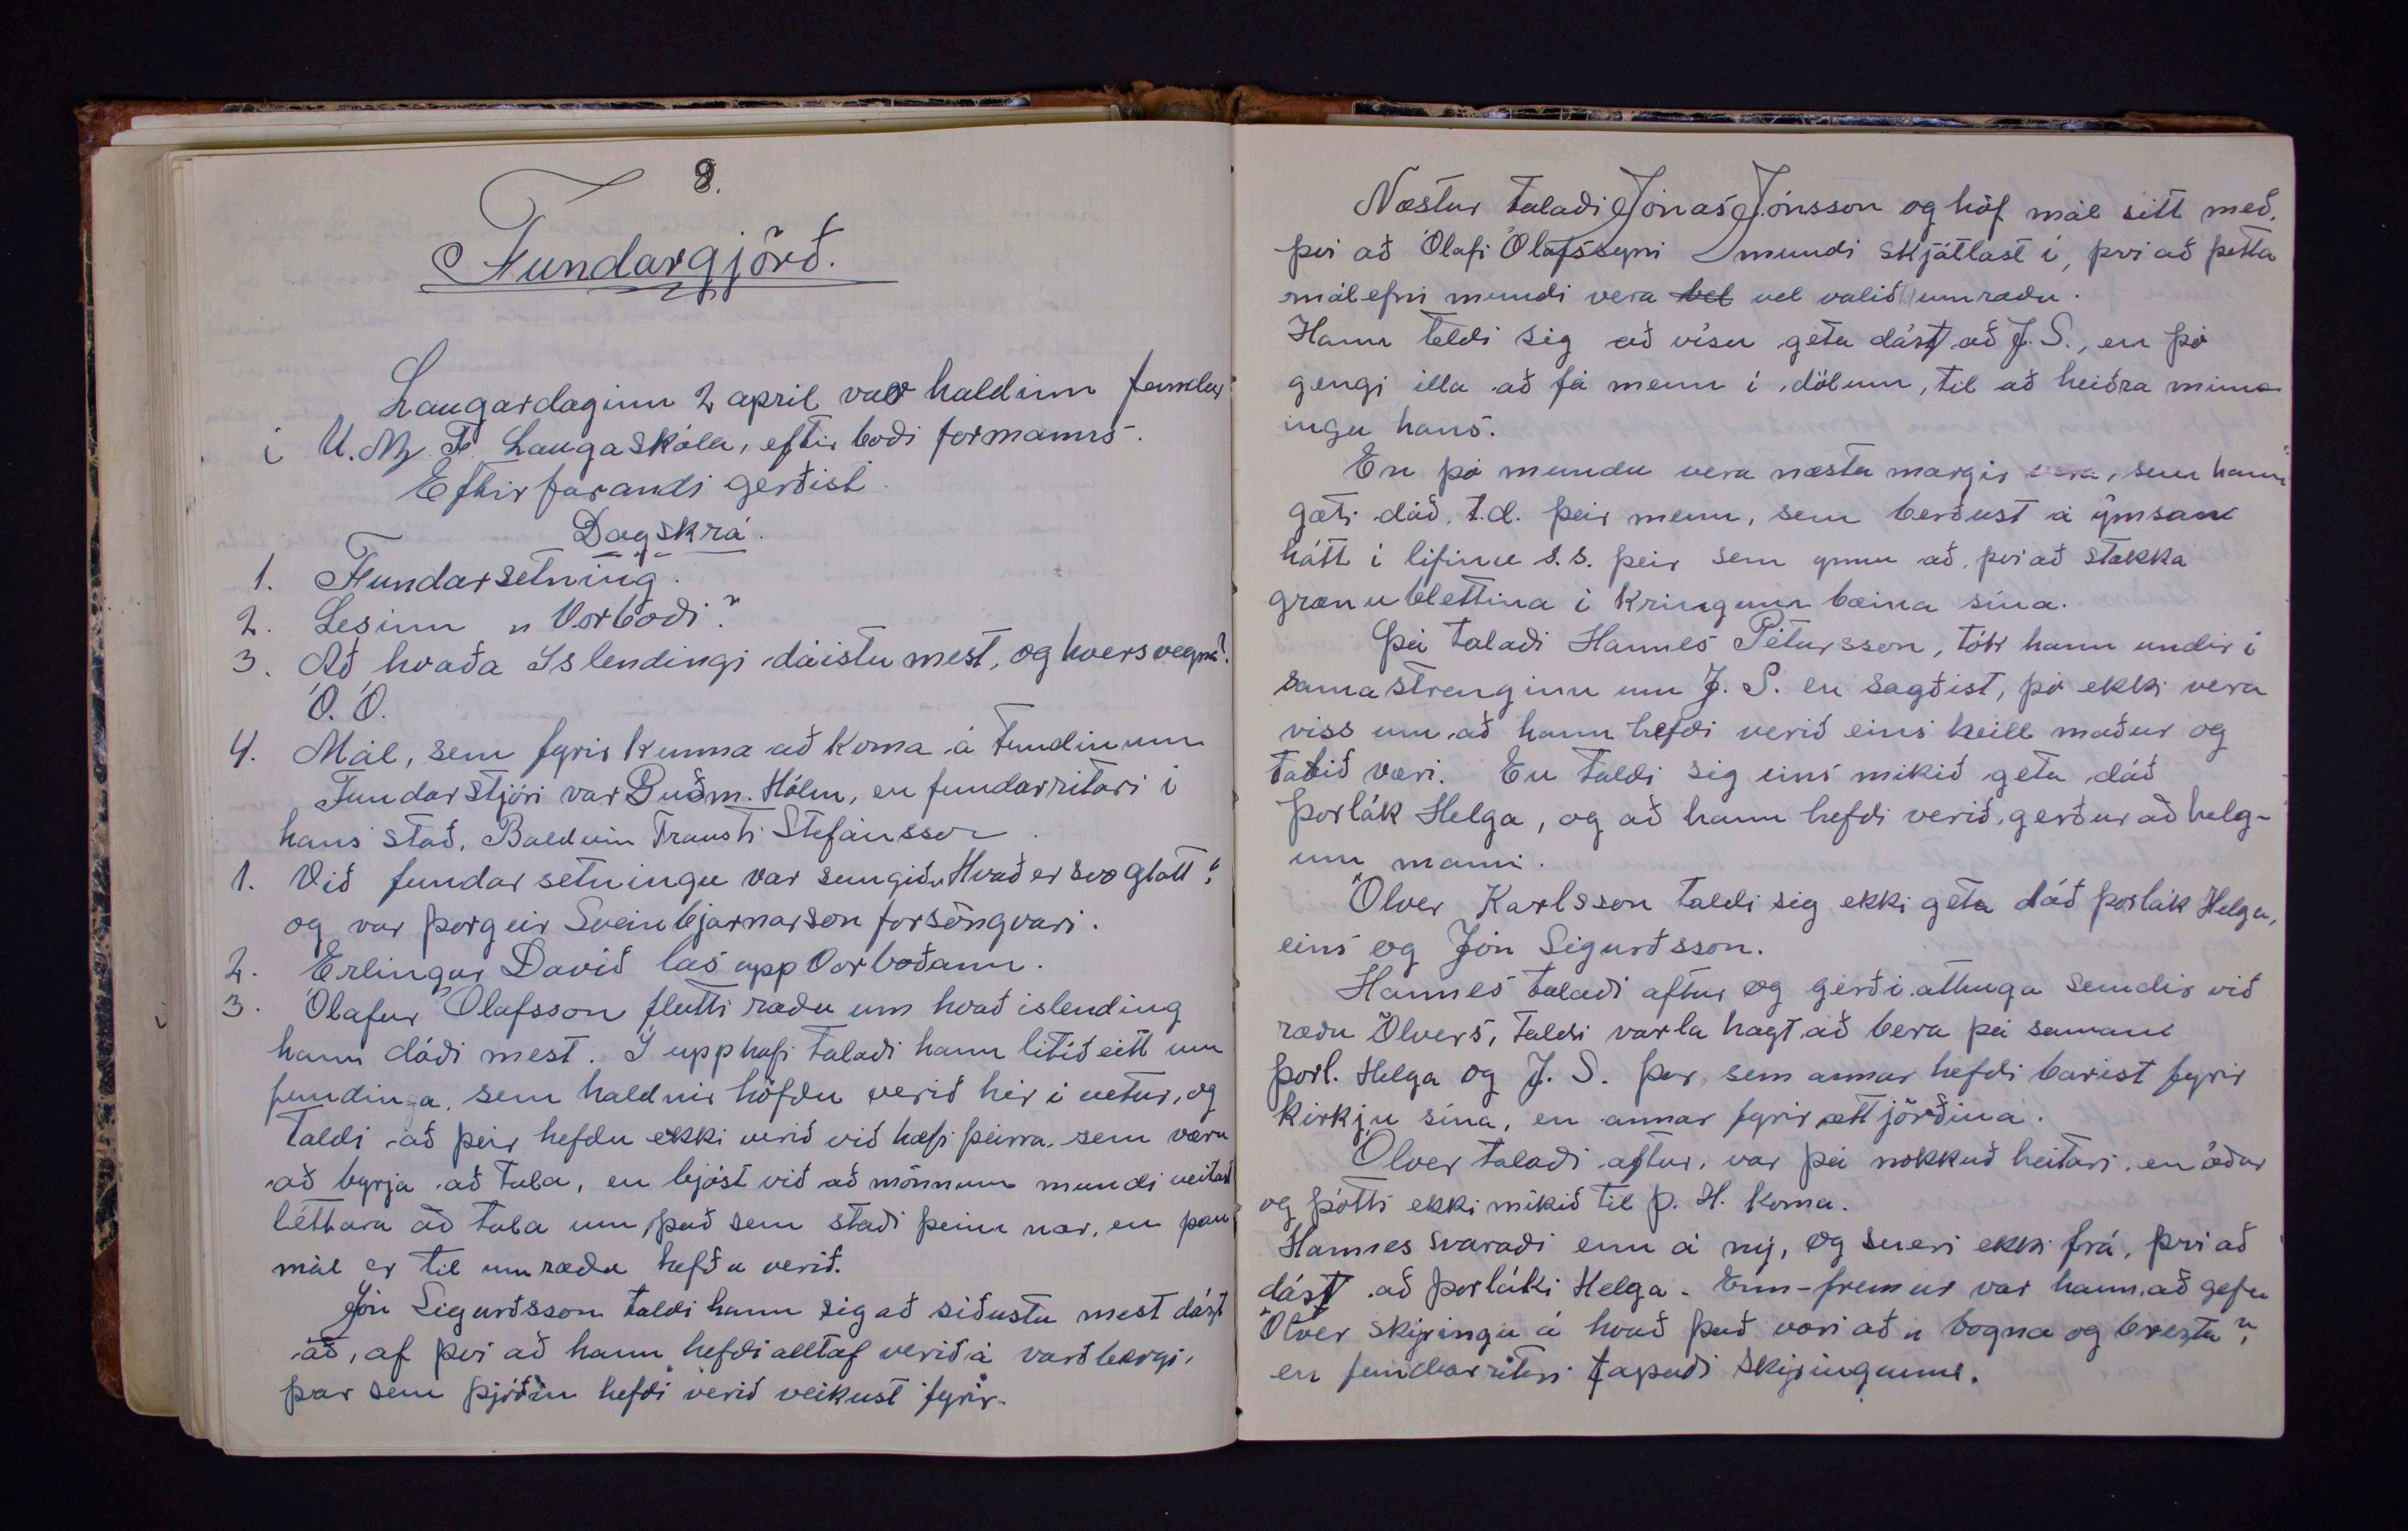 8.
Fundargjörð.
Laugardaginn 2 april var haldinn fundur
i U.M.F. Laugaskóla, eftir boði formanns.
Eftirfarandi gerðist.
Dagskrá.
1. Fundarsetning.
2. Lesinn „Vorboði".
3. Að hvaða Islendingi dáistu mest, og hversvegna?
Ó. Ó.
4. Mál, sem fyrir kunna að koma á fundinum
Fundarstjóri var Guðm. Hólm, en fundarritari i
hans stað, Balduin Trausti Stefánsson.
1. Við fundarsetningu var sungið „Hvað er svo glatt",
og var Þorgeir Sveinbjarnarson forsöngvari.
2. Erlingur Davið las upp Vorboðann.
3. Ólafur Ólafsson flutti ræðu um hvað islending
hann dáði mest. I upphafi talaði hann litið eitt um
fundina, sem haldnir höfðu verið hér i vetur, og
taldi að þeir hefðu ekki verið við hæfi þeirra, sem væru
að byrja að tala, en bjóst við að mönnum mundi veitast
léttara að tala um það sem stæði þeim nær, en þau
mál er til umræðu hefðu verið.
Jón Sigurðsson taldi hann sig að siðustu mest dást
að, af þvi að hann hefði alltaf verið á varðbergi,
þar sem þjóðin hefði verið veikust fyrir.
Næstur talaði Jónas Jónsson og hóf mál sitt með,
þvi að Ólafi Ólafssyni mundi skjátlast i, þvi að þetta
málefni mundi vera bel vel valið umræðu.
Hann teldi sig að visu geta dást að J. S., en þó
gengi illa að fá menn i dölum, til að heiðra minn-
ingu hans.
En þó mundu vera næsta margir vera, sem hann
gæti dáð, t.d. þeir menn, sem berðust á ýmsan
hátt i lifinu s.s. þeir sem ynnu að, þvi að stækka
grænu blettina i kringum bæina sina.
Þá talaði Hannes Pétursson, tók hann undir i
sama strenginn um J. S. en sagðist, þó ekki vera
viss um að hann hefði verið eins heill maður og
talið væri. En taldi sig eins mikið geta dáð
Þorlák Helga, og að hann hefði verið gerður að helg-
um manni.
Ölver Karlsson taldi sig ekki geta dáð Þorlák Helga,
eins og Jón Sigurðsson.
Hannes talaði aftur og gerði athuga semdir við
ræðu Ölvers, taldi varla hægt að bera þá saman
Þorl. Helga og J. S. þar, sem annar hefði barist fyrir
kirkju sina, en annar fyrir ættjörðina.
Ölver talaði aftur, var þá nokkuð heitari, en áður
og þótti ekki mikið til Þ. H. koma.
Hannes svaraði enn á ný, og sneri ekki frá, þvi að
dást að Þorláki Helga. Enn-fremur var hann að gefa
Ölver skýringu á hvað það væri að „bogna og bresta",
en fundarritari tapaði skýringunni.